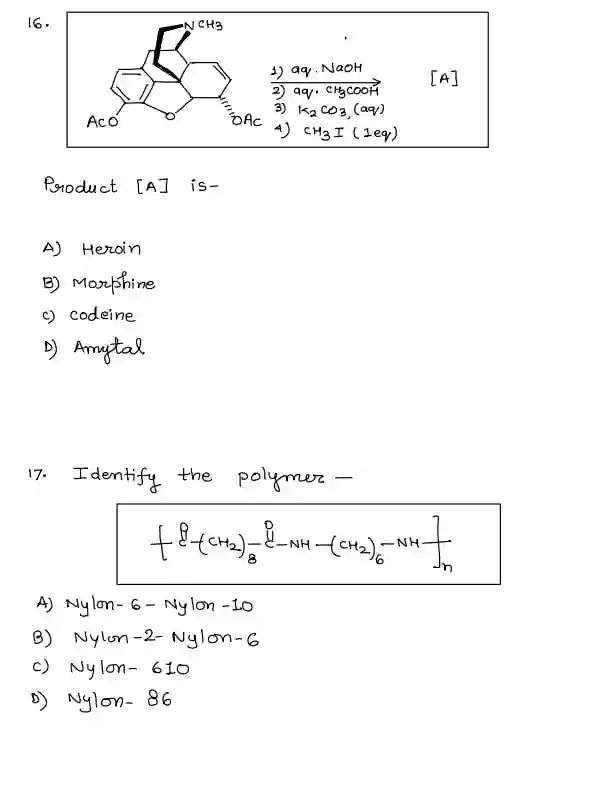 16.
NCH3
AcO
O
OAc
1) aq. NaOH
2) aq. CH3COOH
3) K2CO3, (aq)
4) CH3I (1eq)
[A]
Product [A] is-
A) Heroin
B) Morphine
c) codeine
D) Amytal
17. Identify the polymer —
[O C-(CH2)8-O C-NH-(CH2)6-NH]n
A) Nylon-6- Nylon-10
B) Nylon-2- Nylon-6
c) Nylon- 610
D) Nylon- 86